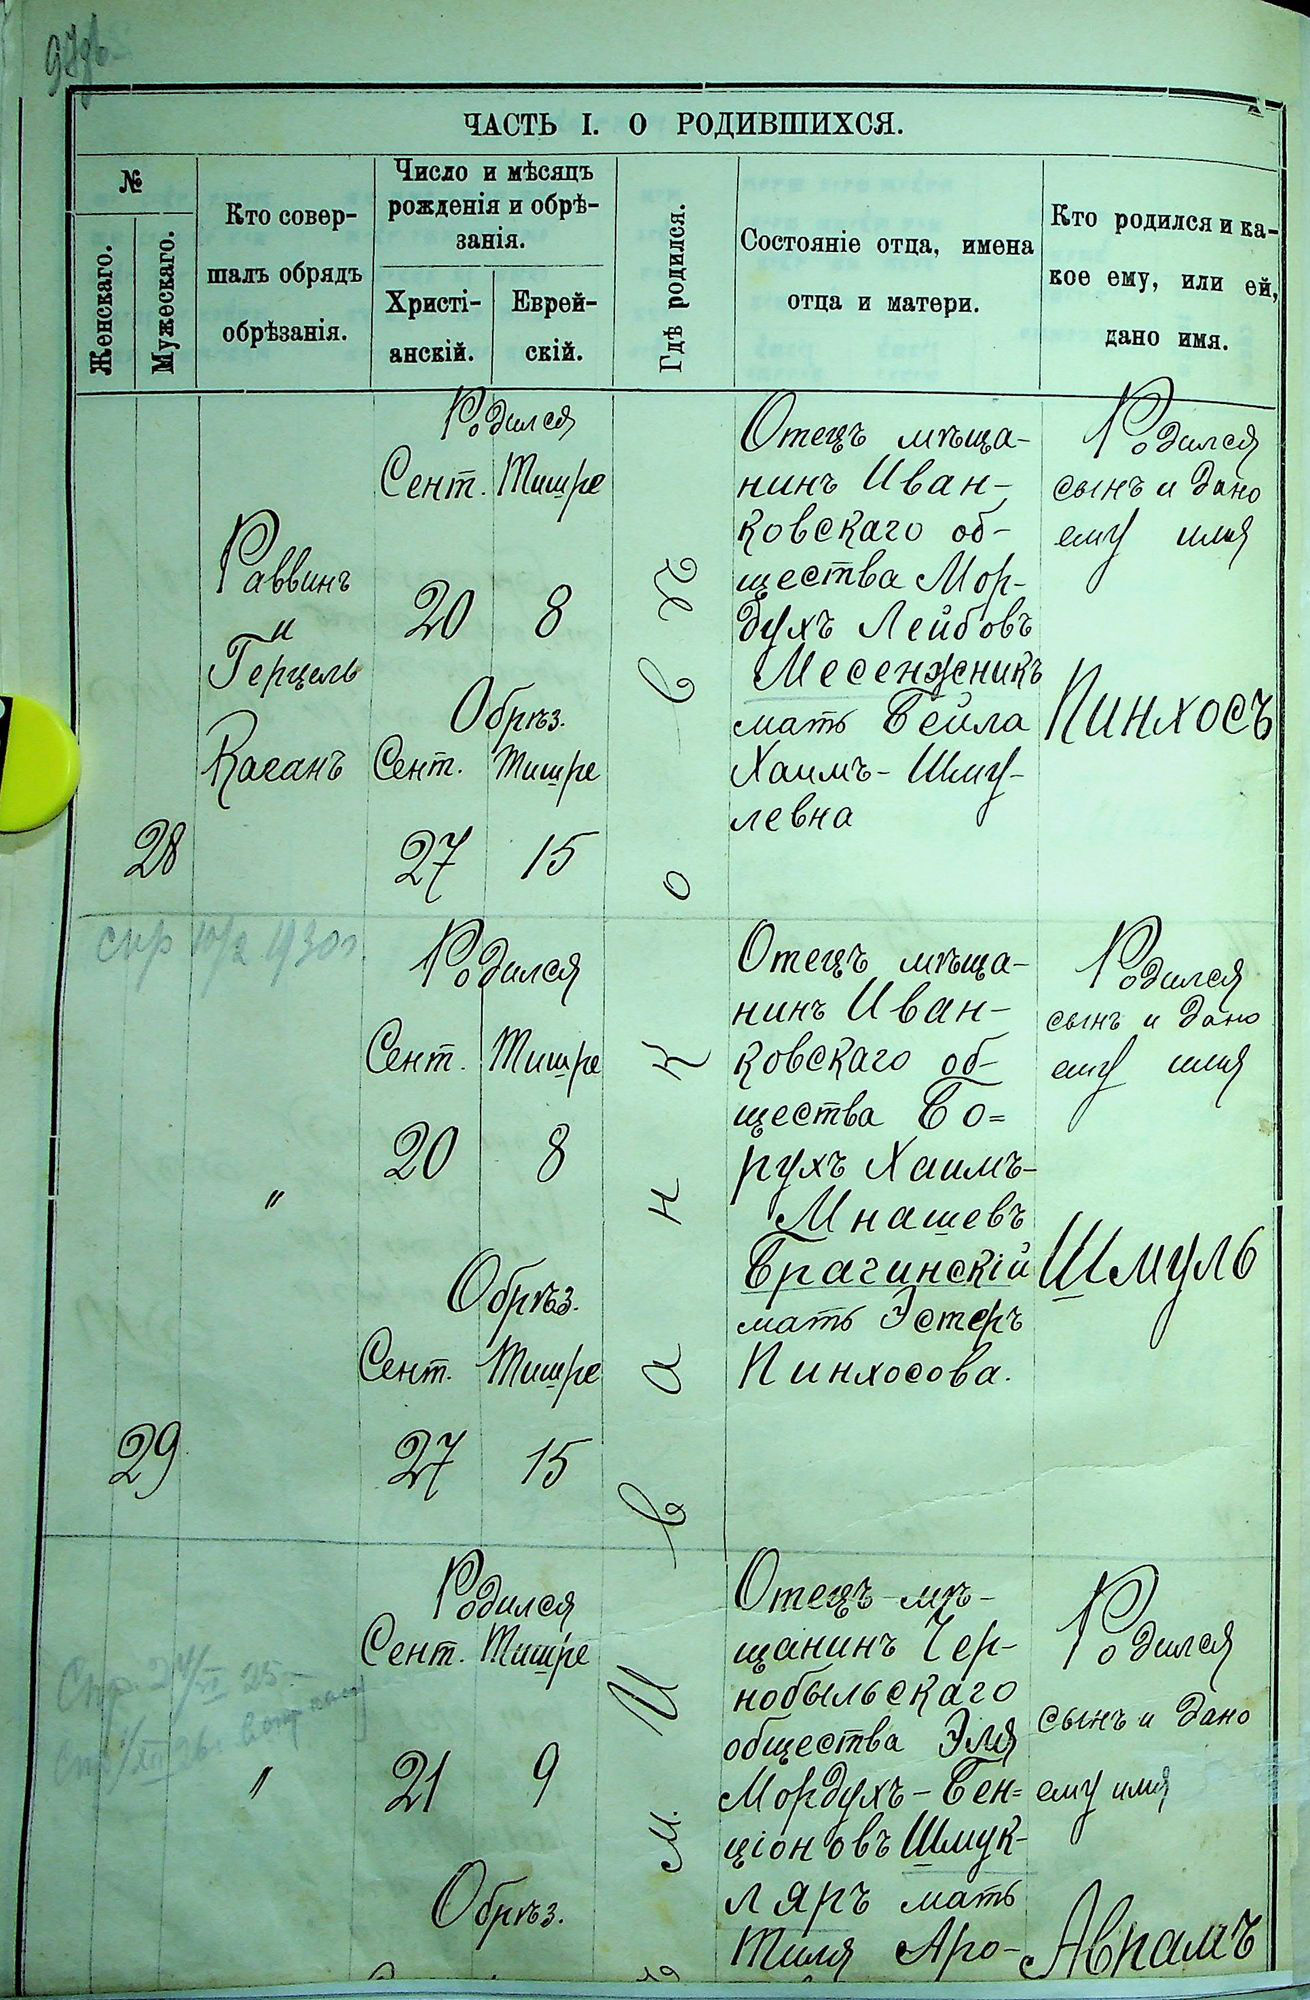 97об
ЧАСТЬ I. О РОДИВШИХСЯ.
№
Женскаго.
Мужескаго.
Кто совер-
шалъ обрядъ
обрѣзанія.
Число и мѣсяцъ
рожденія и обрѣ-
занія.
Христі-
анскій.
Еврей-
скій.
Гдѣ родился.
Состояніе отца, имена
отца и матери.
Кто родился и ка-
кое ему, или ей,
дано имя.
28
Раввинъ
и
Герцель
Каганъ
Родился
Сент. Тишре
20 8
Обрѣз.
Сент. Тишре
27 15
Отецъ мѣща-
нинъ Иван-
ковскаго об-
щества Мор-
духъ Лейбовъ
Месенжникъ
мать Бейла
Хаимъ-Шму-
левна
Родился
сынъ и дано
ему имя
Пинхосъ
м. Иванковѣ
29
"
Родился
Сент. Тишре
20 8
Обрѣз.
Сент. Тишре
27 15
Отецъ мѣща-
нинъ Иван-
ковскаго об-
щества Бо=
рухъ Хаимъ-
Мнашевъ
Брагинскій
мать Эстеръ
Пинхосова.
Родился
сынъ и дано
ему имя
Шмуль
"
Родился
Сент. Тишре
21 9
Обрѣз.
Отецъ мѣ-
щанинъ Чер-
нобыльскаго
общества Эля
Мордухъ-Бен=
ціоновъ Шмук-
ляръ мать
Тиля Аро-
Родился
сынъ и дано
ему имя
Аврамъ